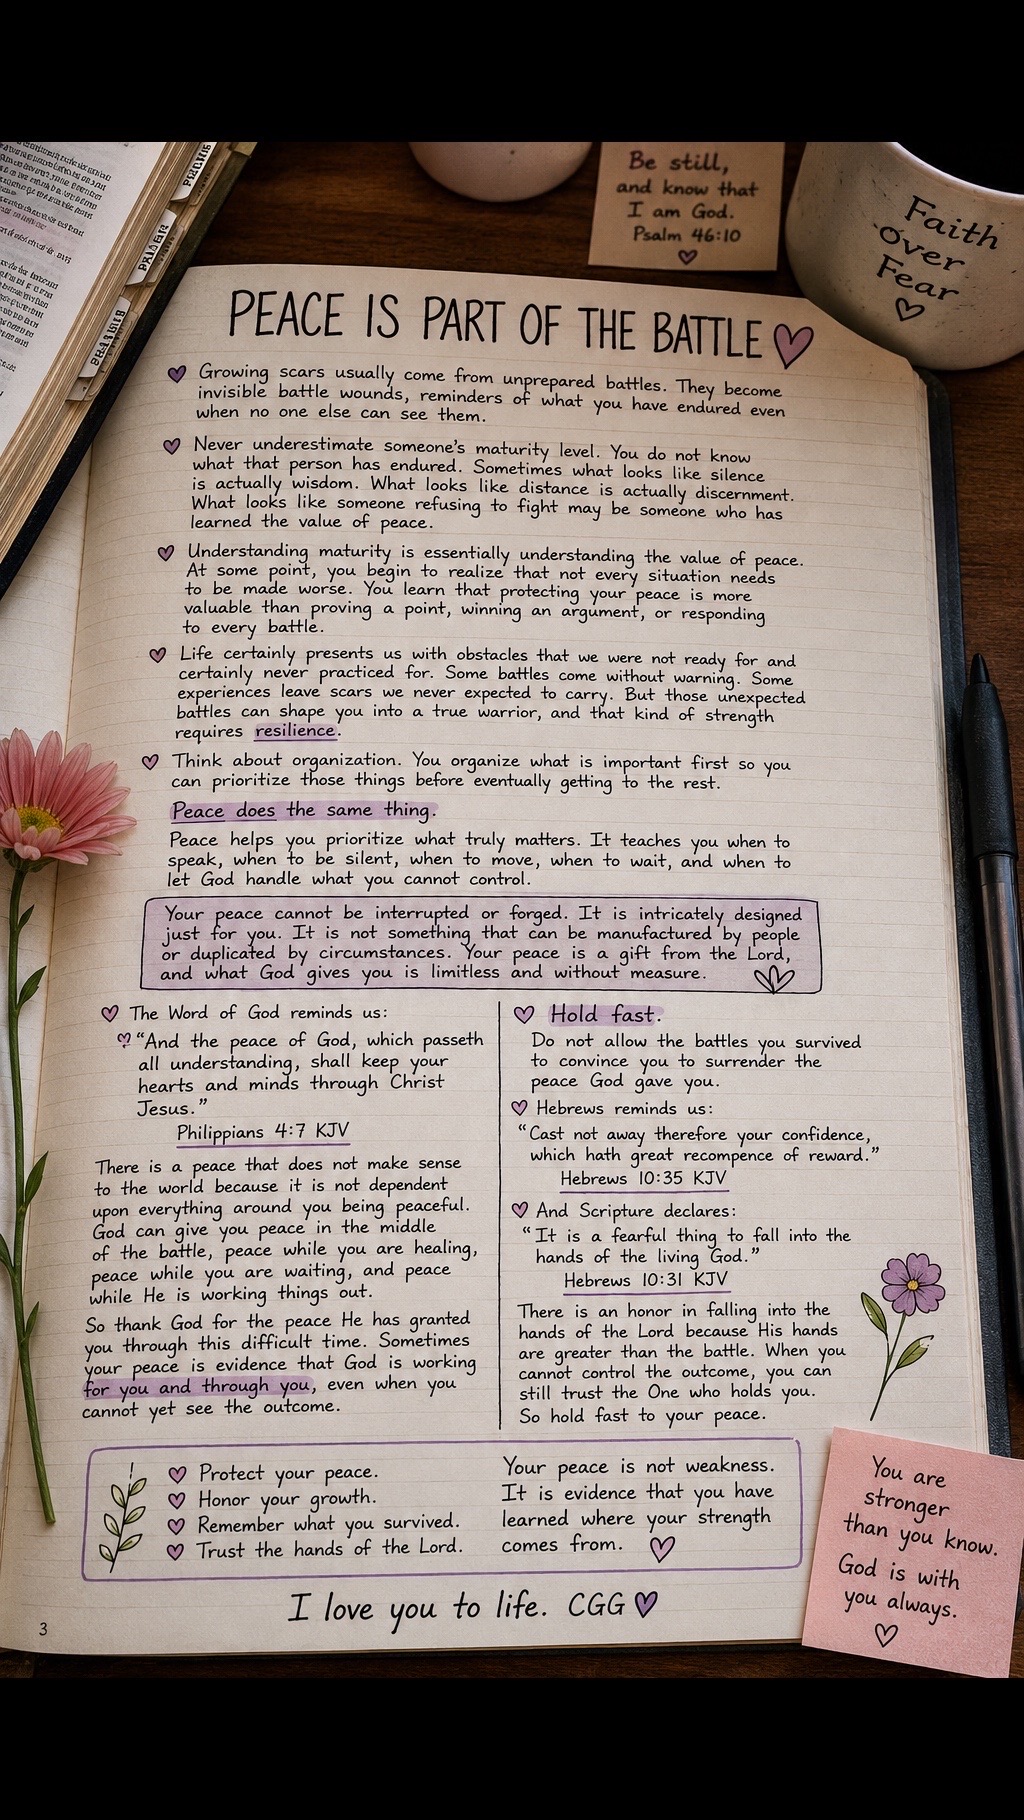 Be still,
and know that
I am God.
Psalm 46:10
Faith
over
Fear
PEACE IS PART OF THE BATTLE
Growing scars usually come from unprepared battles. They become
invisible battle wounds, reminders of what you have endured even
when no one else can see them.
Never underestimate someone's maturity level. You do not know
what that person has endured. Sometimes what looks like silence
is actually wisdom. What looks like distance is actually discernment.
What looks like someone refusing to fight may be someone who has
learned the value of peace.
Understanding maturity is essentially understanding the value of peace.
At some point, you begin to realize that not every situation needs
to be made worse. You learn that protecting your peace is more
valuable than proving a point, winning an argument, or responding
to every battle.
Life certainly presents us with obstacles that we were not ready for and
certainly never practiced for. Some battles come without warning. Some
experiences leave scars we never expected to carry. But those unexpected
battles can shape you into a true warrior, and that kind of strength
requires resilience.
Think about organization. You organize what is important first so you
can prioritize those things before eventually getting to the rest.
Peace does the same thing.
Peace helps you prioritize what truly matters. It teaches you when to
speak, when to be silent, when to move, when to wait, and when to
let God handle what you cannot control.
Your peace cannot be interrupted or forged. It is intricately designed
just for you. It is not something that can be manufactured by people
or duplicated by circumstances. Your peace is a gift from the Lord,
and what God gives you is limitless and without measure.
The Word of God reminds us:
"And the peace of God, which passeth
all understanding, shall keep your
hearts and minds through Christ
Jesus."
Philippians 4:7 KJV
There is a peace that does not make sense
to the world because it is not dependent
upon everything around you being peaceful.
God can give you peace in the middle
of the battle, peace while you are healing,
peace while you are waiting, and peace
while He is working things out.
So thank God for the peace He has granted
you through this difficult time. Sometimes
your peace is evidence that God is working
for you and through you, even when you
cannot yet see the outcome.
Hold fast.
Do not allow the battles you survived
to convince you to surrender the
peace God gave you.
Hebrews reminds us:
"Cast not away therefore your confidence,
which hath great recompence of reward."
Hebrews 10:35 KJV
And Scripture declares:
"It is a fearful thing to fall into the
hands of the living God."
Hebrews 10:31 KJV
There is an honor in falling into the
hands of the Lord because His hands
are greater than the battle. When you
cannot control the outcome, you can
still trust the One who holds you.
So hold fast to your peace.
Protect your peace.
Honor your growth.
Remember what you survived.
Trust the hands of the Lord.
Your peace is not weakness.
It is evidence that you have
learned where your strength
comes from.
I love you to life. CGG
3
You are
stronger
than you know.
God is with
you always.